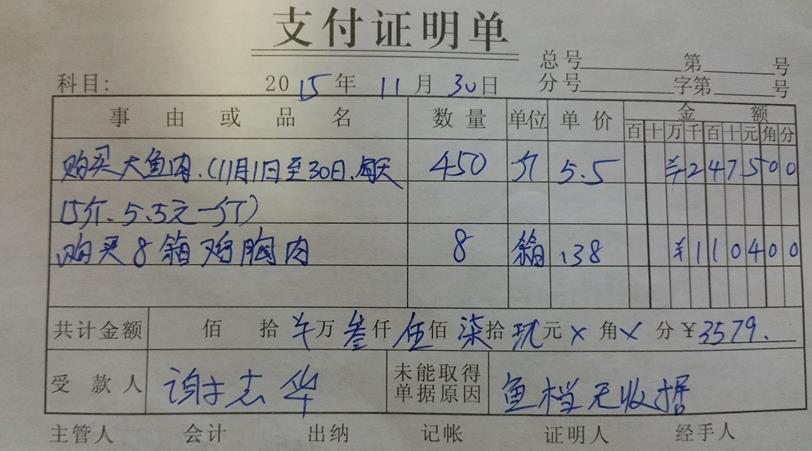 支付证明单
总号 第 号
科目: 2015年11月30日 分号 字第 号
事由或品名 数量 单位 单价 金额
百十万千百十元角分
购买大鱼肉.(11月1日至30日.每天 450 斤 5.5 ¥247500
15斤.5.5元一斤)
购买8箱鸡胸肉 8 箱 138 ¥110400
共计金额 佰 拾 万叁仟伍佰柒拾玖元×角×分¥3579.
受款人 谢志华 未能取得单据原因 鱼档无收据
主管人 会计 出纳 记帐 证明人 经手人